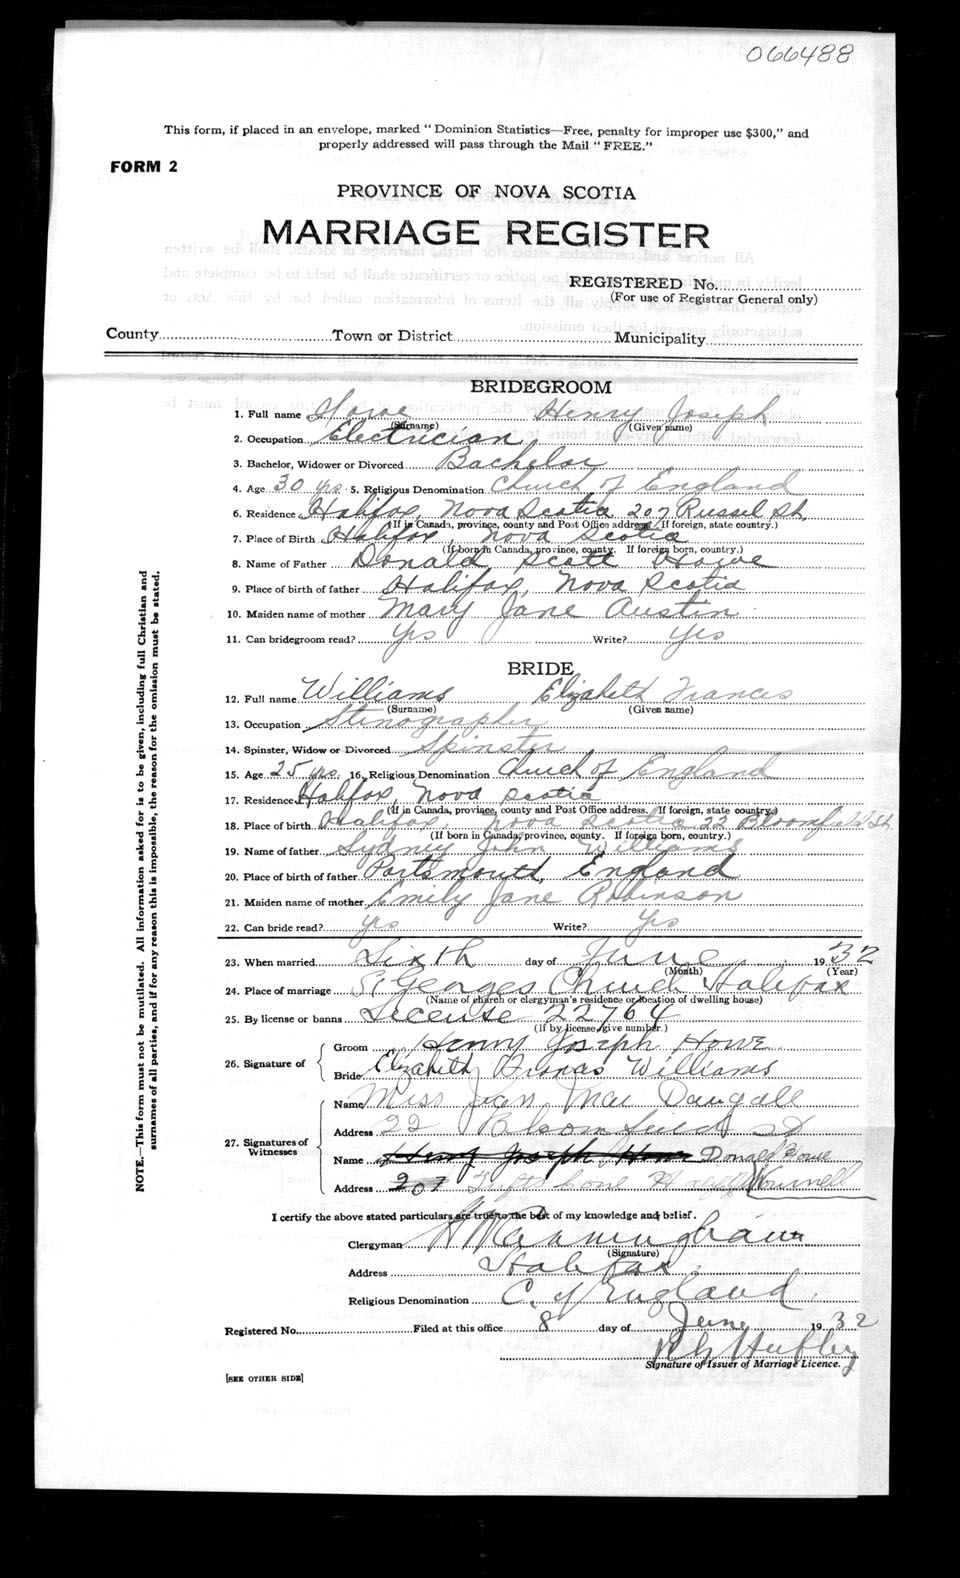 066488
This form, if placed in an envelope, marked "Dominion Statistics—Free, penalty for improper use $300," and
properly addressed will pass through the Mail "FREE."
FORM 2
PROVINCE OF NOVA SCOTIA
MARRIAGE REGISTER
REGISTERED No.
(For use of Registrar General only)
County Town or District Municipality
BRIDEGROOM
1. Full name Howe Henry Joseph
(Surname) (Given name)
2. Occupation Electrician
3. Bachelor, Widower or Divorced Bachelor
4. Age 30 yrs. 5. Religious Denomination Church of England
6. Residence Halifax, Nova Scotia 207 Russel St.
(If in Canada, province, county and Post Office address. If foreign, state country.)
7. Place of Birth Halifax, Nova Scotia
(If born in Canada, province, county. If foreign born, country.)
8. Name of Father Donald Scott Howe
9. Place of birth of father Halifax, Nova Scotia
10. Maiden name of mother Mary Jane Austin
11. Can bridegroom read? Yes Write? Yes
BRIDE
12. Full name Williams Elizabeth Frances
(Surname) (Given name)
13. Occupation Stenographer
14. Spinster, Widow or Divorced Spinster
15. Age 25 yrs. 16. Religious Denomination Church of England
17. Residence Halifax, Nova Scotia
(If in Canada, province, county and Post Office address. If foreign, state country.)
18. Place of birth Halifax, Nova Scotia 22 Bloomfield St.
(If born in Canada, province, county. If foreign born, country.)
19. Name of father Sydney John Williams
20. Place of birth of father Portsmouth, England
21. Maiden name of mother Emily Jane Robinson
22. Can bride read? Yes Write? Yes
23. When married Sixth day of June 1932
(Month) (Year)
24. Place of marriage St Georges Church Halifax
(Name of church or clergyman's residence or location of dwelling house)
25. By license or banns License 22764
(if by license, give number.)
26. Signature of
Groom Henry Joseph Howe
Bride Elizabeth Frances Williams
27. Signatures of Witnesses
Name Miss Jean Mac Dougall
Address 22 Bloomfield St
Name Henry Joseph Howe Donald Howe
Address 207
I certify the above stated particulars are true to the best of my knowledge and belief.
Clergyman
(Signature)
Address Halifax
Religious Denomination C. of England
Registered No. Filed at this office 8 day of June 1932
Signature of Issuer of Marriage Licence.
[SEE OTHER SIDE]
NOTE.—This form must not be mutilated. All information asked for is to be given, including full Christian and
surnames of all parties, and if for any reason this is impossible, the reason for the omission must be stated.